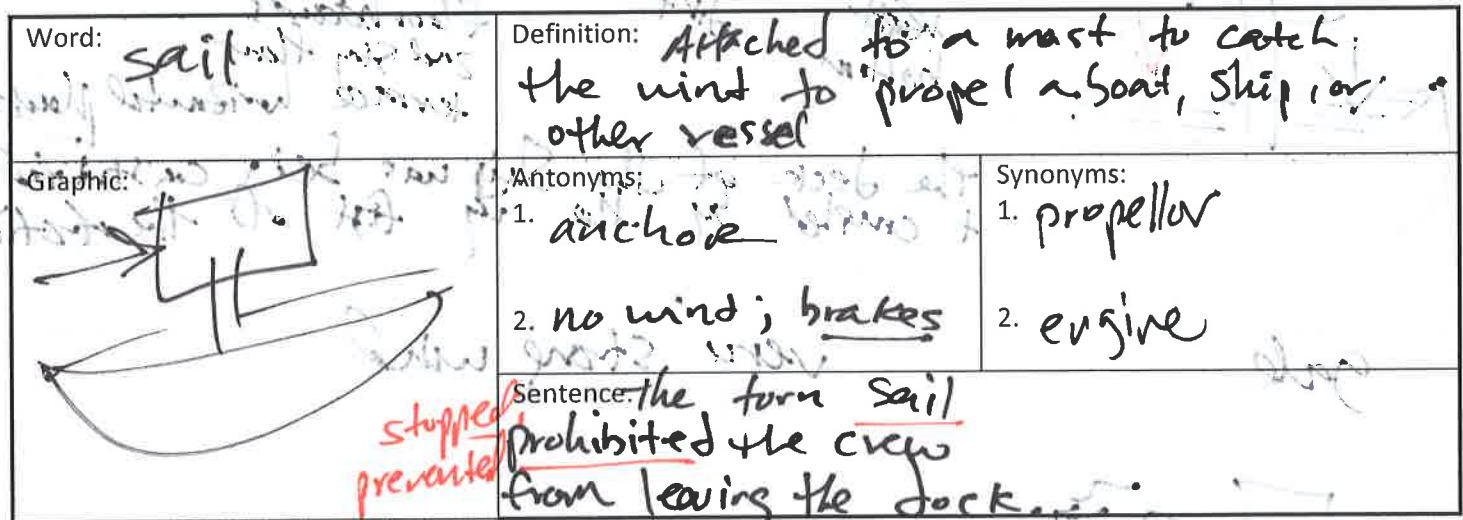 Word: sail
Definition: Attached to a mast to catch
the wind to propel a boat, ship, or
other vessel
Graphic:
Antonyms:
1. anchore
2. no wind; brakes
Synonyms:
1. propellor
2. engine
Sentence: the torn sail
prohibited the crew
from leaving the dock
stopped
prevented